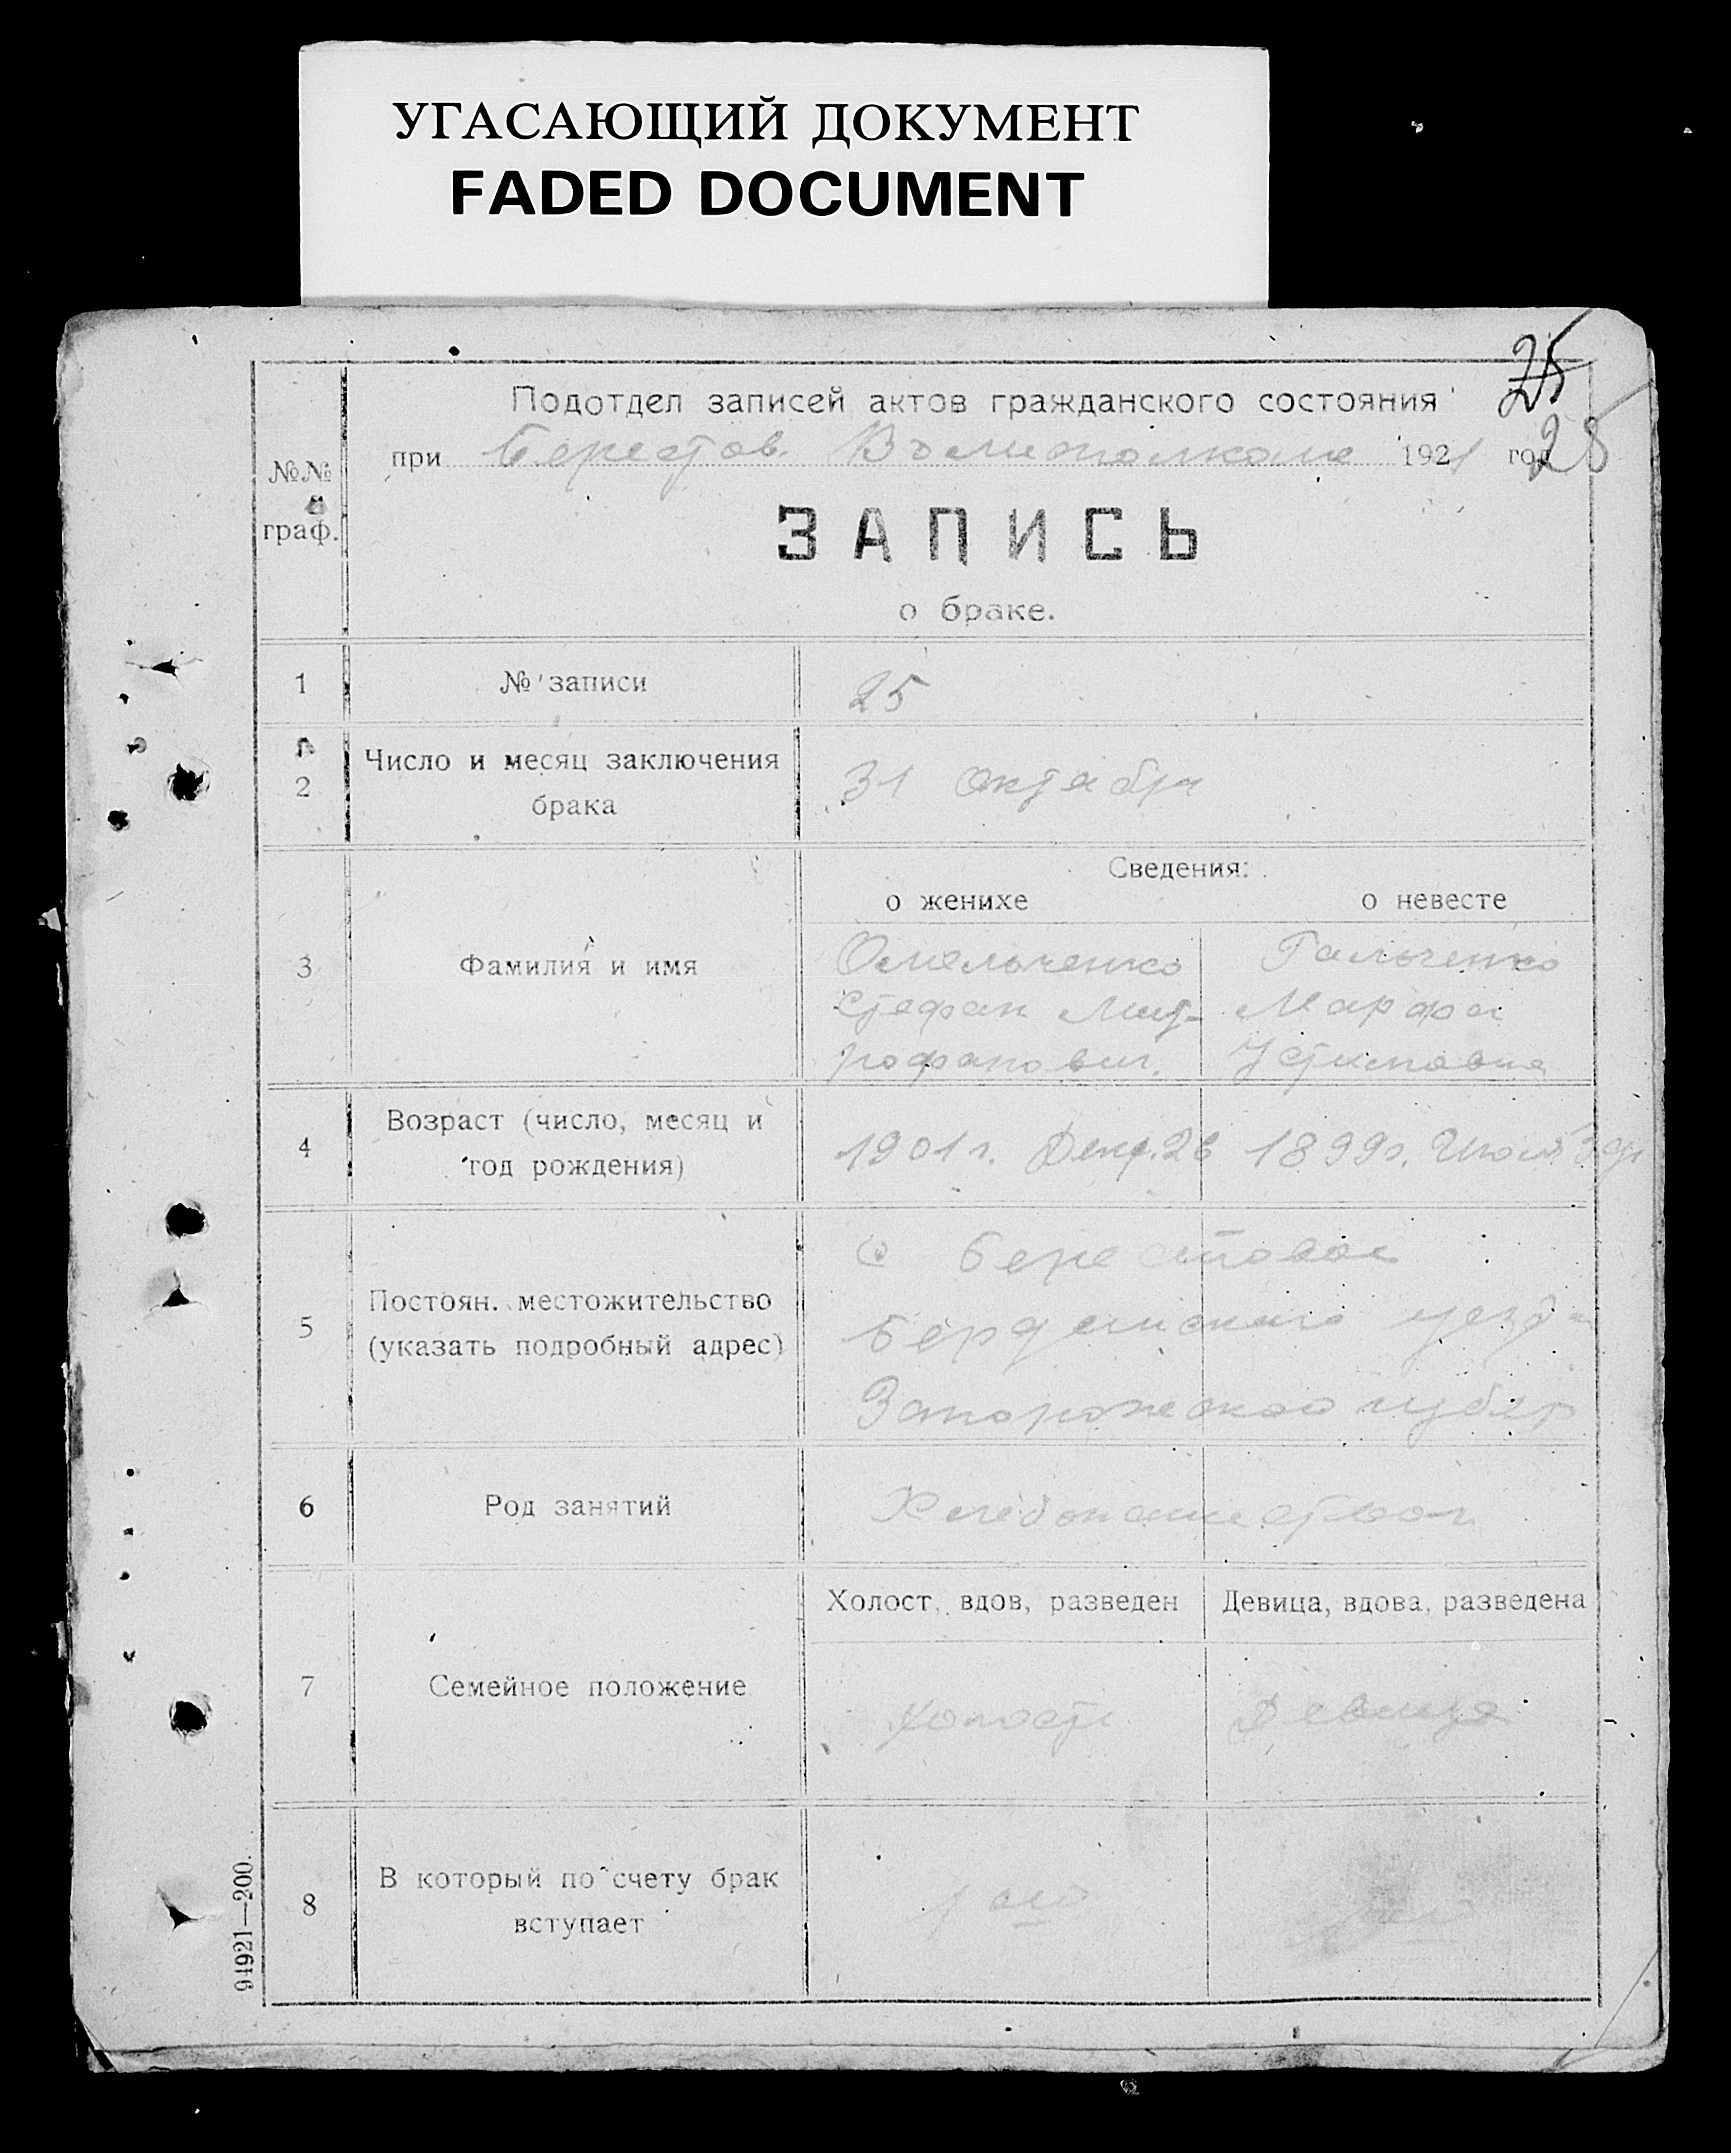 УГАСАЮЩИЙ ДОКУМЕНТ
FADED DOCUMENT
25
Подотдел записей актов гражданского состояния
при Берестов. 1921 год
28
№№
граф.
ЗАПИСЬ
о браке.
1 № записи 25
2 Число и месяц заключения
брака
31 октября
Сведения:
о женихе о невесте
3 Фамилия и имя
Омельченко Гальченко
Стефан Мит- Марфа
рофанович. Устиновна
4 Возраст (число, месяц и
год рождения)
1901 г. Дек. 26 1899 г. Июля
5 Постоян. местожительство
(указать подробный адрес)
с Берестовое
Бердянского уезда
Запорожской губер
6 Род занятий
Хлебопашеством
Холост, вдов, разведен Девица, вдова, разведена
7 Семейное положение
Холост Девица
8 В который по счету брак
вступает
1 ый
94921—200.